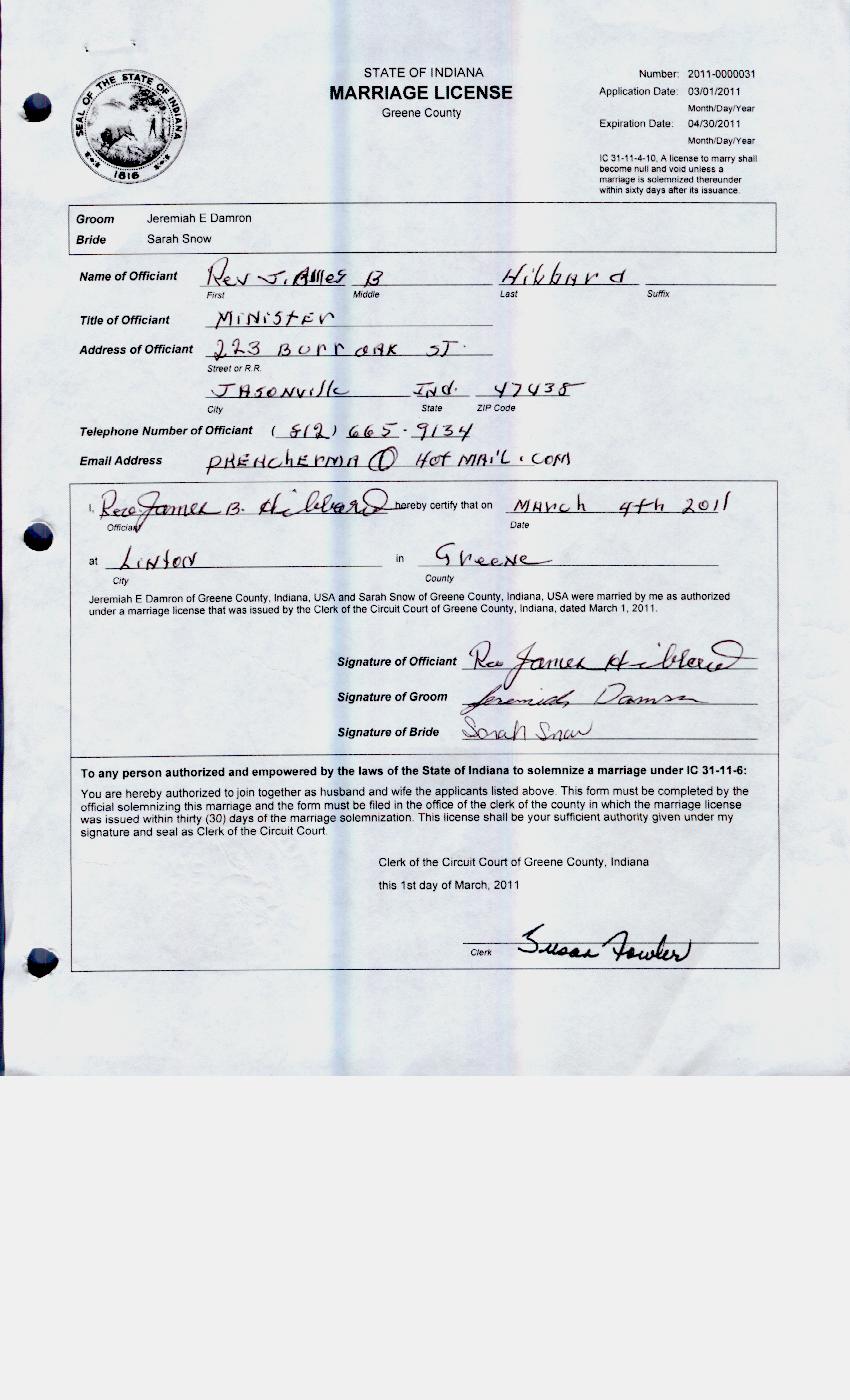 SEAL OF THE STATE OF INDIANA
1816
STATE OF INDIANA
MARRIAGE LICENSE
Greene County
Number: 2011-0000031
Application Date: 03/01/2011
Month/Day/Year
Expiration Date: 04/30/2011
Month/Day/Year
IC 31-11-4-10, A license to marry shall
become null and void unless a
marriage is solemnized thereunder
within sixty days after its issuance.
Groom Jeremiah E Damron
Bride Sarah Snow
Name of Officiant Rev JAmes B Hibbard
First Middle Last Suffix
Title of Officiant MINISTER
Address of Officiant 223 Burr OAK ST.
Street or R.R.
JASONville Ind. 47438
City State ZIP Code
Telephone Number of Officiant (812) 665-9134
Email Address @ Hot MAil.com
I, Rev James B. Hibbard hereby certify that on March 4th 2011
Official Date
at Linton in Greene
City County
Jeremiah E Damron of Greene County, Indiana, USA and Sarah Snow of Greene County, Indiana, USA were married by me as authorized
under a marriage license that was issued by the Clerk of the Circuit Court of Greene County, Indiana, dated March 1, 2011.
Signature of Officiant Rev James Hibbard
Signature of Groom Jeremiah Damron
Signature of Bride Sarah Snow
To any person authorized and empowered by the laws of the State of Indiana to solemnize a marriage under IC 31-11-6:
You are hereby authorized to join together as husband and wife the applicants listed above. This form must be completed by the
official solemnizing this marriage and the form must be filed in the office of the clerk of the county in which the marriage license
was issued within thirty (30) days of the marriage solemnization. This license shall be your sufficient authority given under my
signature and seal as Clerk of the Circuit Court.
Clerk of the Circuit Court of Greene County, Indiana
this 1st day of March, 2011
Clerk Susan Fowler